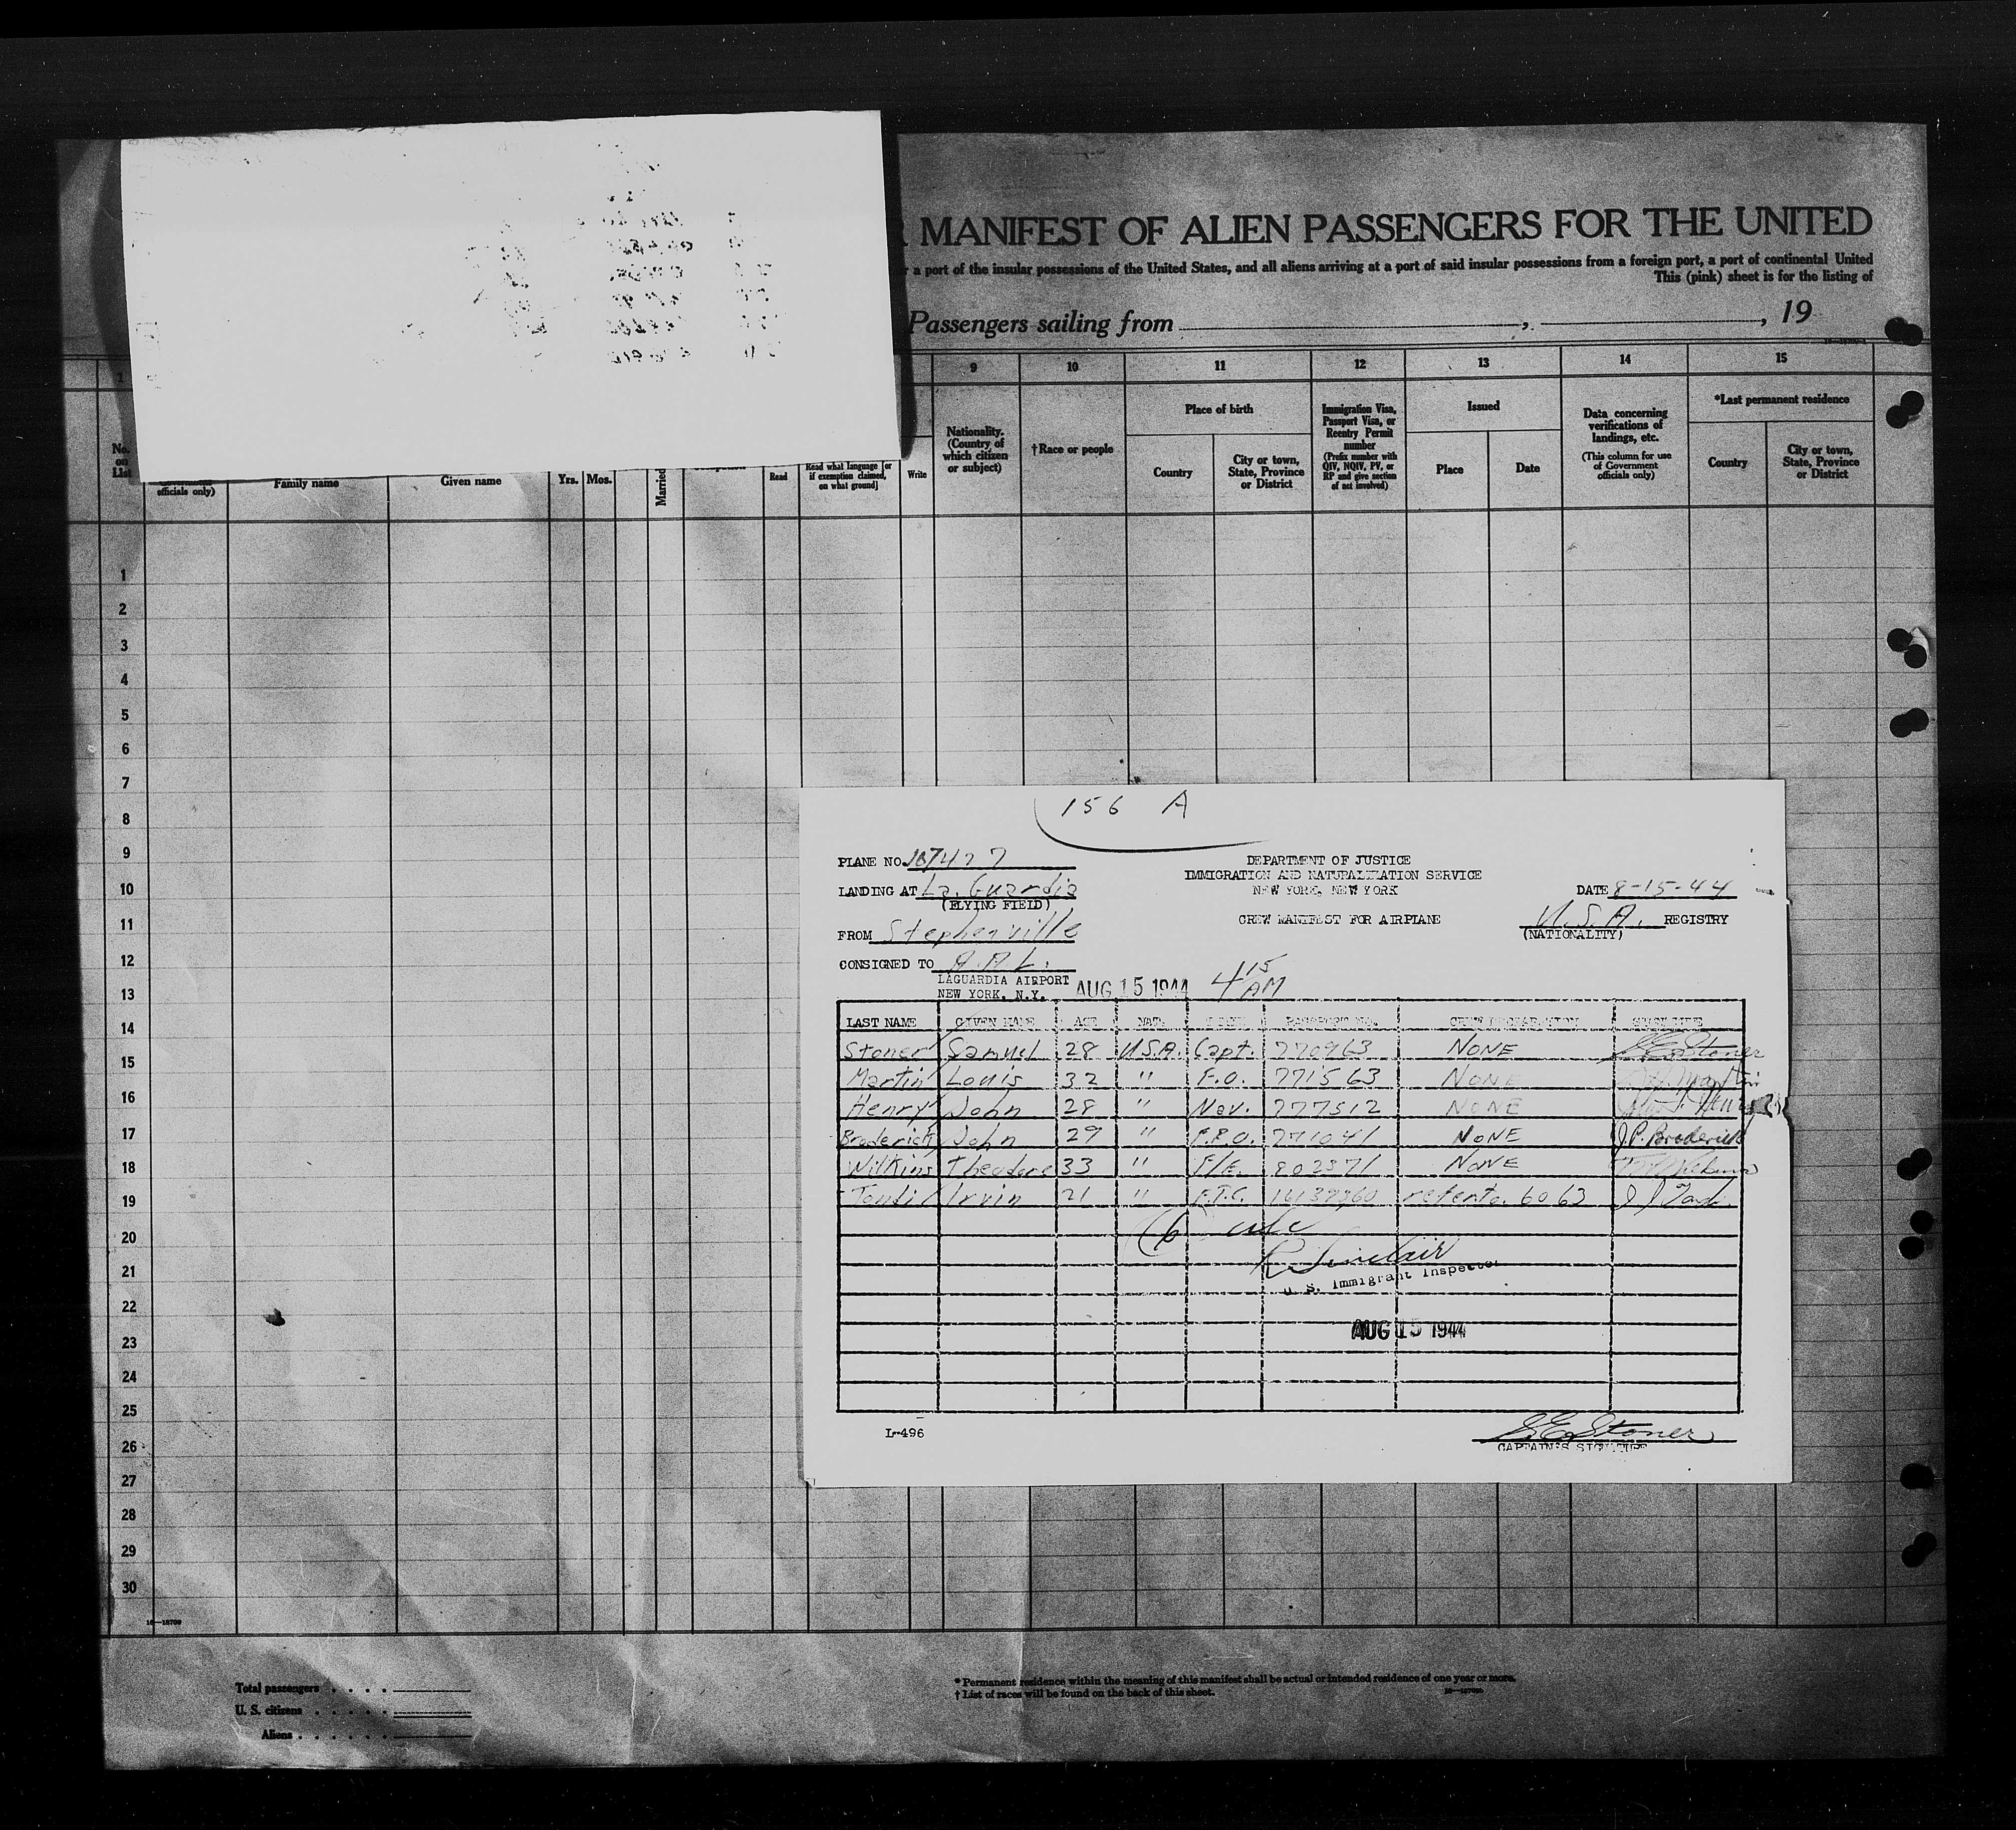 MANIFEST OF ALIEN PASSENGERS FOR THE UNITED
a port of the insular possessions of the United States, and all aliens arriving at a port of said insular possessions from a foreign port, a port of continental United
This (pink) sheet is for the listing of
Passengers sailing from , , 19
1 9 10 11 12 13 14 15
No. on List
officials only)
Family name
Given name
Yrs. Mos.
Married
Read
Read what language [or if exemption claimed, on what ground]
Write
Nationality. (Country of which citizen or subject)
†Race or people
Place of birth
Country
City or town, State, Province or District
Immigration Visa, Passport Visa, or Reentry Permit number
(Prefix number with QIV, NQIV, PV, or RP and give section of act involved)
Issued
Place
Date
Data concerning verifications of landings, etc.
(This column for use of Government officials only)
*Last permanent residence
Country
City or town, State, Province or District
1
2
3
4
5
6
7
8
9
10
11
12
13
14
15
16
17
18
19
20
21
22
23
24
25
26
27
28
29
30
156 A
PLANE NO.
DEPARTMENT OF JUSTICE
IMMIGRATION AND NATURALIZATION SERVICE
LANDING AT La Guardia
NEW YORK, NEW YORK
DATE 8-15-44
(FLYING FIELD)
CREW MANIFEST FOR AIRPLANE
U.S.A. REGISTRY
(NATIONALITY)
FROM Stephenville
CONSIGNED TO A.A.L.
LAGUARDIA AIRPORT
NEW YORK, N.Y. AUG 15 1944 4 15 AM
LAST NAME GIVEN NAME AGE NAT. PASSPORT NO.
Stoner Samuel 28 U.S.A. Capt. 770963 NONE S E Stoner
Martin Louis 32 " F.O. 771563 NONE
Henry John 28 " Nav. 777512 NONE
Broderick John 29 " F.R.O. 771041 NONE J.P. Broderick
Wilkins Theodore 33 " F/E. 802371 NONE
Irvin 21 " 6063
R Sinclair
U. S. Immigrant Inspector
AUG 15 1944
L-496
S E Stoner
CAPTAIN'S SIGNATURE
16—18709
Total passengers
U. S. citizens
Aliens
*Permanent residence within the meaning of this manifest shall be actual or intended residence of one year or more.
†List of races will be found on the back of this sheet.